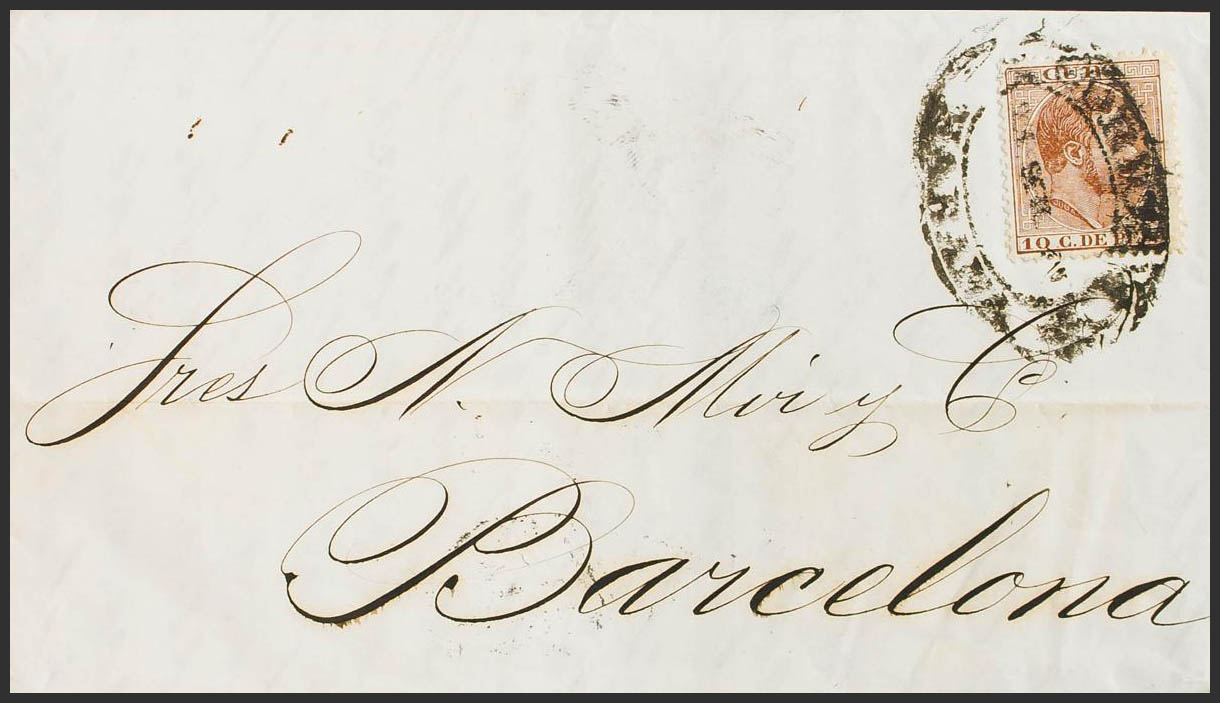 CUBA
10 C. DE PE
Sres N. Moi y C.
Barcelona